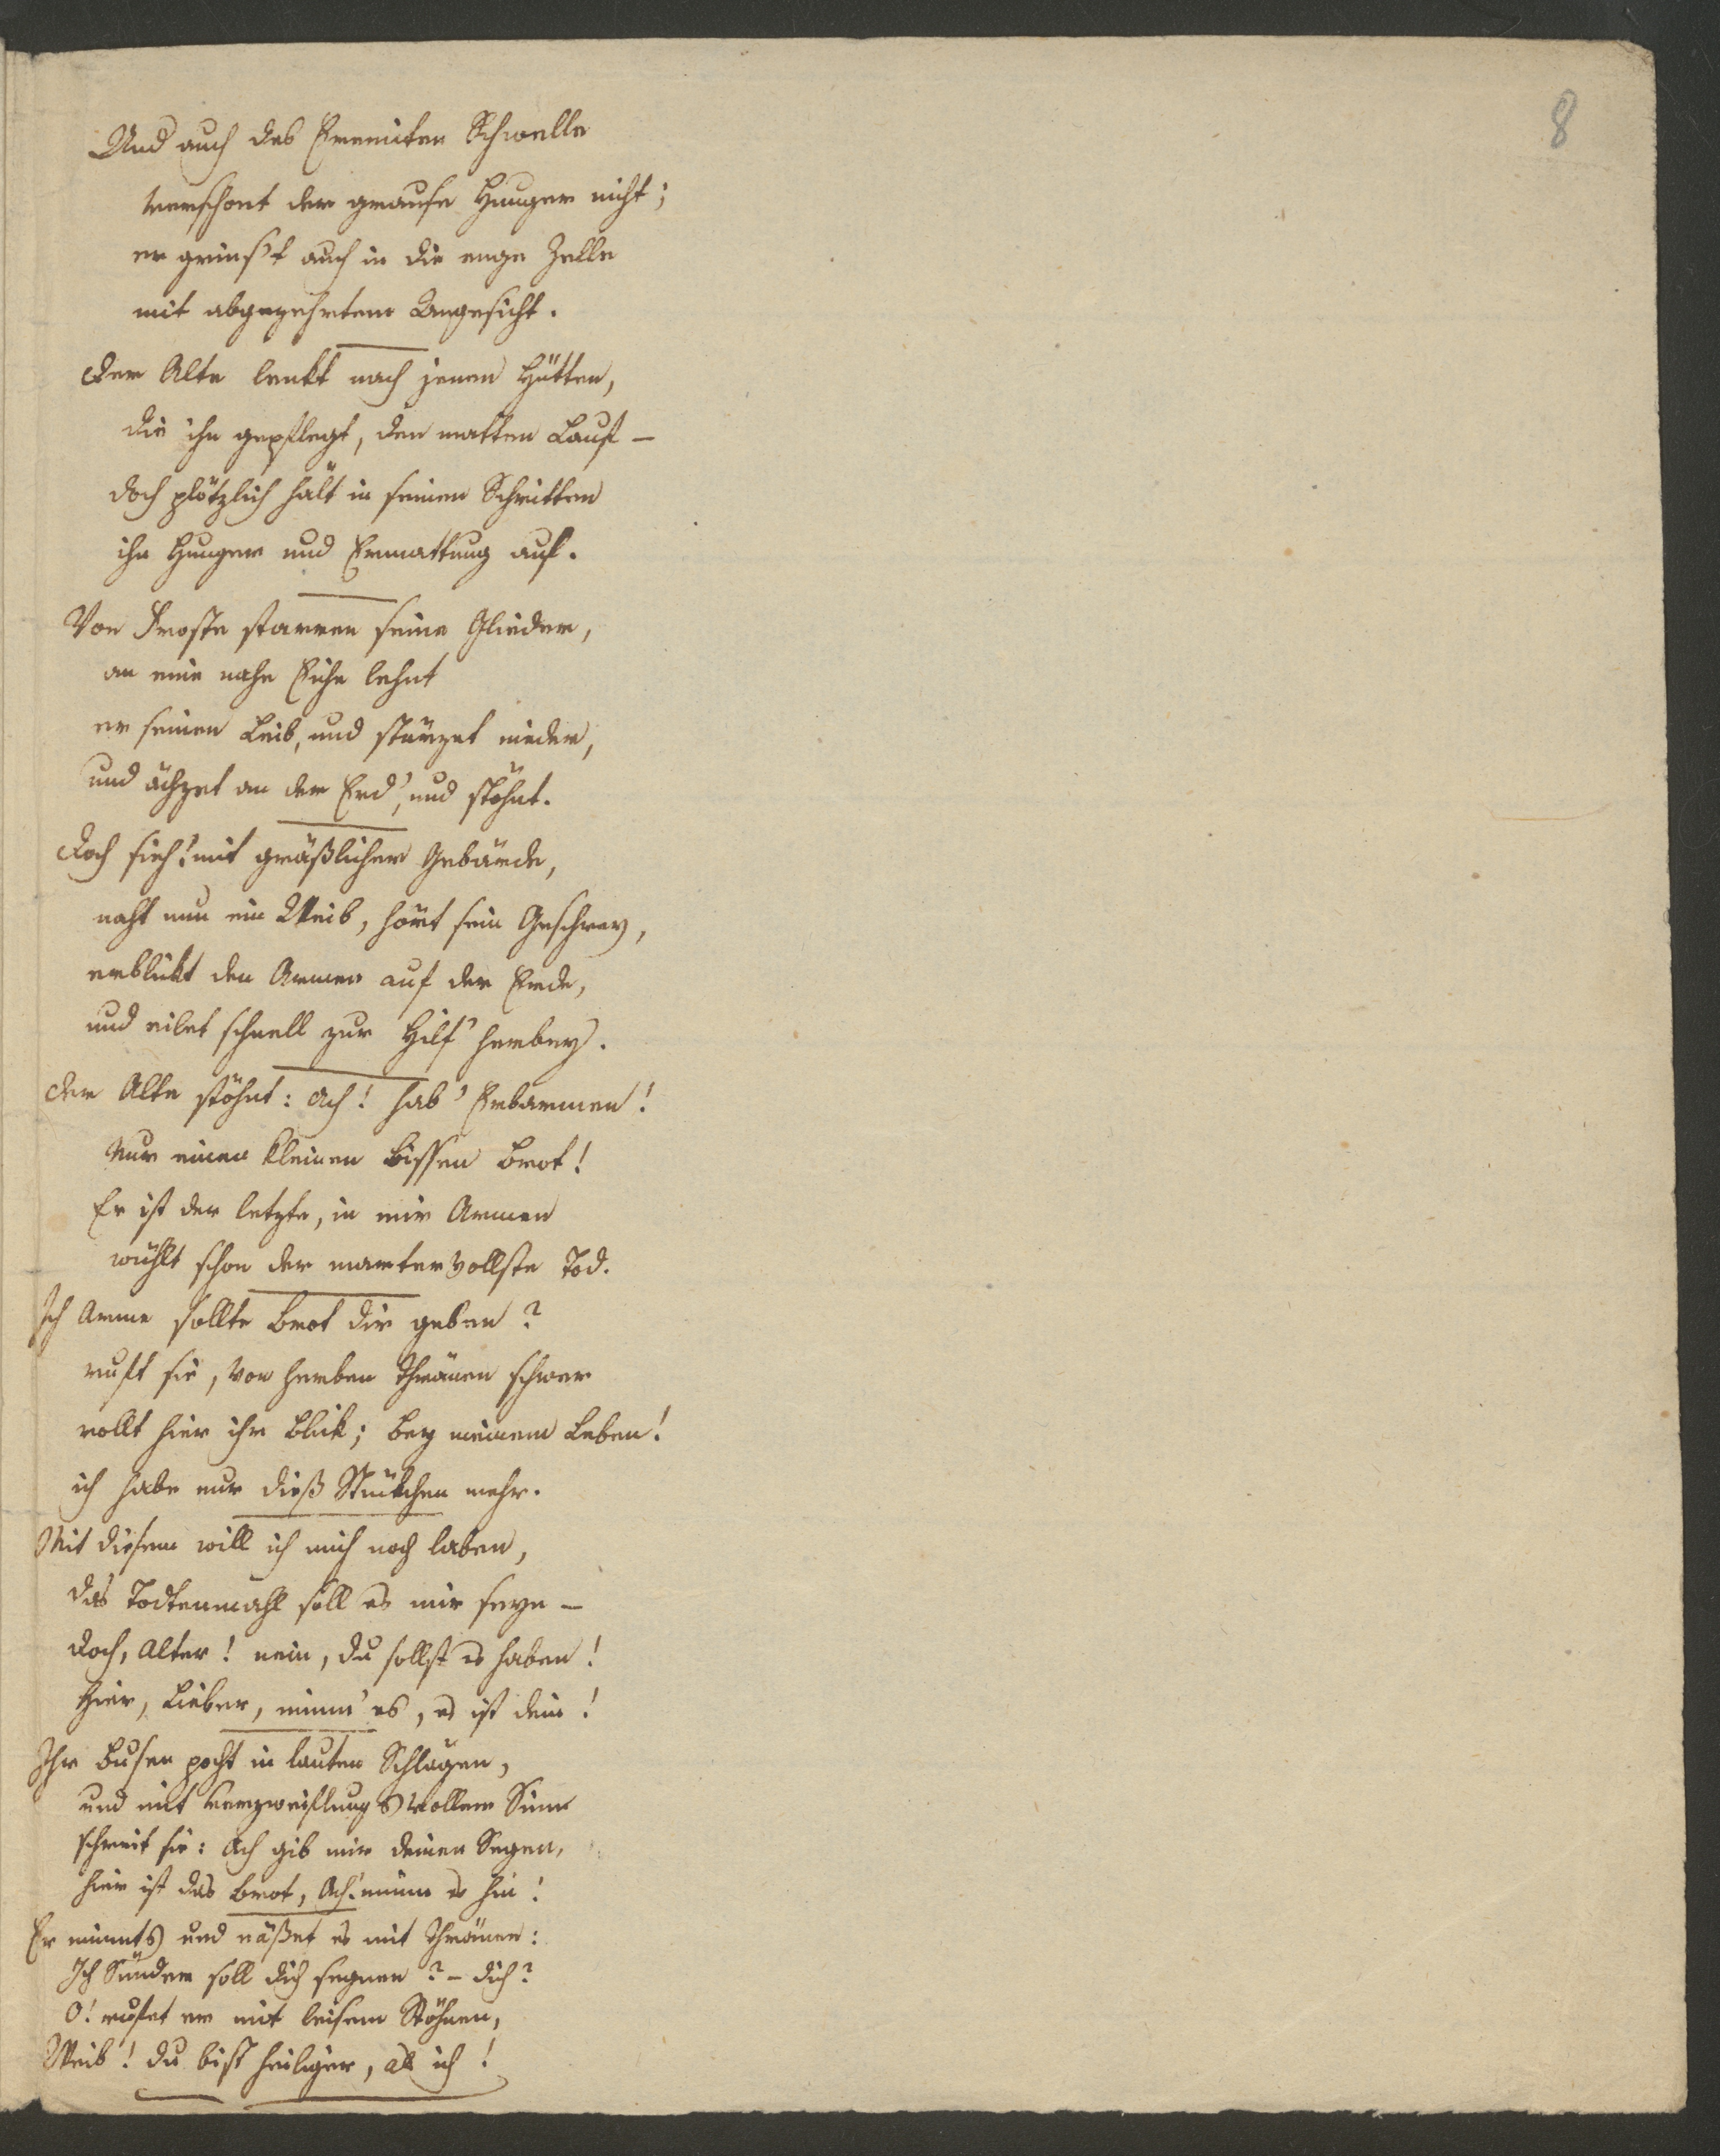 8
Und auch des Eremiten Schwelle
verschont der grause Hunger nicht;
er grinst auch in die enge Zelle
mit abgezehrtem Angesicht.
Der Alte lenkt nach jenen Hütten,
die ihn gepflegt, den matten Lauf –
doch plötzlich hält in seinen Schritten
ihn Hunger und Ermattung auf.
Von Froste starren seine Glieder,
an eine nahe Eiche lehnt
er seinen Leib, und stürzet nieder,
und ächzet an der Erd', und stöhnt.
Doch sieh! mit gräßlicher Gebärde,
naht nun ein Weib, hört sein Geschrey,
erblickt den Armen auf der Erde,
und eilet schnell zur Hilf' herbey.
Der Alte stöhnt: Ach! hab' Erbarmen!
Nur einen kleinen Bissen Brot!
Er ist der letzte, in mir Armen
wühlt schon der martervollste Tod.
Ich Arme sollte Brot dir geben?
ruft sie, von herben Thränen schwer
rollt hier ihr Blick; bey meinem Leben!
ich habe nur dieß Stückchen mehr.
Mit diesem will ich mich noch laben,
das Todtenmahl soll es mir seyn –
doch, Alter! nein, du sollst es haben!
hier, Lieber, nimm' es, es ist dein!
Ihr Busen pocht in lauten Schlägen,
und mit verzweiflungsvollem Sinn
schreit sie: Ach gib mir deinen Segen,
hier ist das Brot, Ach! nimm es hin!
Er nimmts und näßet es mit Thränen:
Ich Sünder soll dich segnen? – dich?
O! rufet er mit leisem Stöhnen,
Weib! du bist heiliger, als ich!